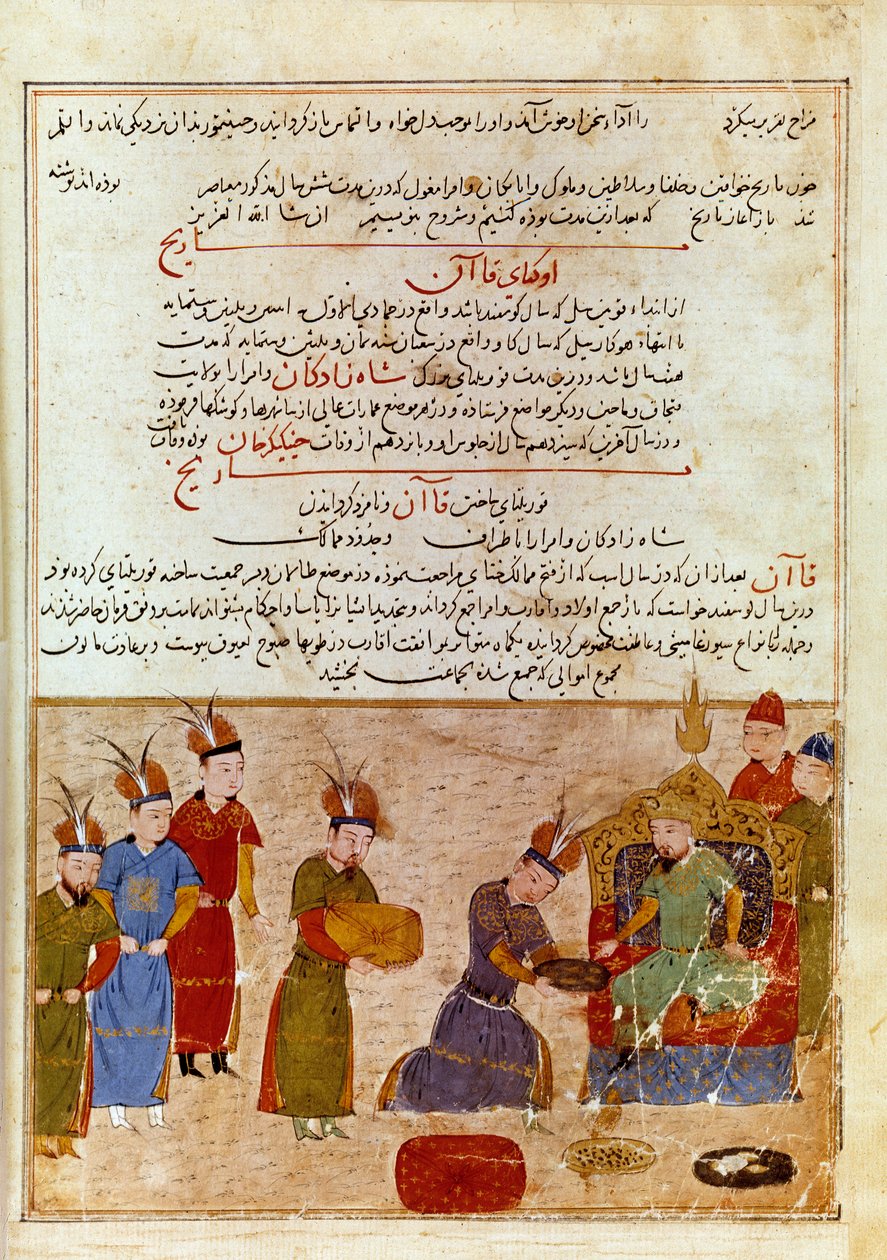 مزاج تقریر میکرد را اداء سخن او خوش آمد و او را بموجب دل خواه و التماس باز کردانید و جینتمور بدان نزدیکی نماند والله اعلم
جون تاریخ خواقین و خلفا و سلاطین و ملوک و اتابکان و امرا مغول که درین مدت شش سال مذکور معاصر بوده اند نوشته
شد باز آغاز تاریخ که بعد ازین مدت بوده کنیم و مشروح بنویسیم ان شا الله العزیز
تاریخ
اوکتای قاآن
از ابتداء قوین ییل که سال کوسفند باشد واقع در جمادی الاول سنه اثنین و ثلثین و ستمایه
تا انتهاء هوکار ییل که سال کاو واقع در شعبان سنه ثمان و ثلثین و ستمایه که مدت
هفت سال باشد و درین مدت قوریلتای بزرک شاه زادکان و امرا را بولایت
قبجاق و ماجین و دیکر مواضع فرستاده و در هر موضع عمارات عالی از سانهرها و کوشکها فرموده
و در سال آخرین که سیزدهم سال از جلوس او و بانزدهم از وفات جینککیز خان بوده وفات یافت
تاریخ
قوریلتای ساختن قاآن و نامزد کردانیدن
شاه زادکان و امرا را باطراف و حدود ممالک
قاآن بعد از ان که در سال اسب که از فتح ممالک ختای مراجعت نموده در موضع طالان دبسر جمعیت ساخته قوریلتای کرده بود
درین سال کوسفند خواست که باز جمع اولاد و اقارب و امرا جمع کرداند و بتجدید استماع یاسا و احکام بشنواند تمامت بر وفق فرمان حاضر شدند
و جمله را بانواع سیورغامیشی و عاطفت مخصوص کردانیده یکماه متواتر بموافقت اقارب در طویها صبوح بغبوق بیوست و بر عادت مالوف
مجموع اموالی که جمع شده بجماعت بخشید